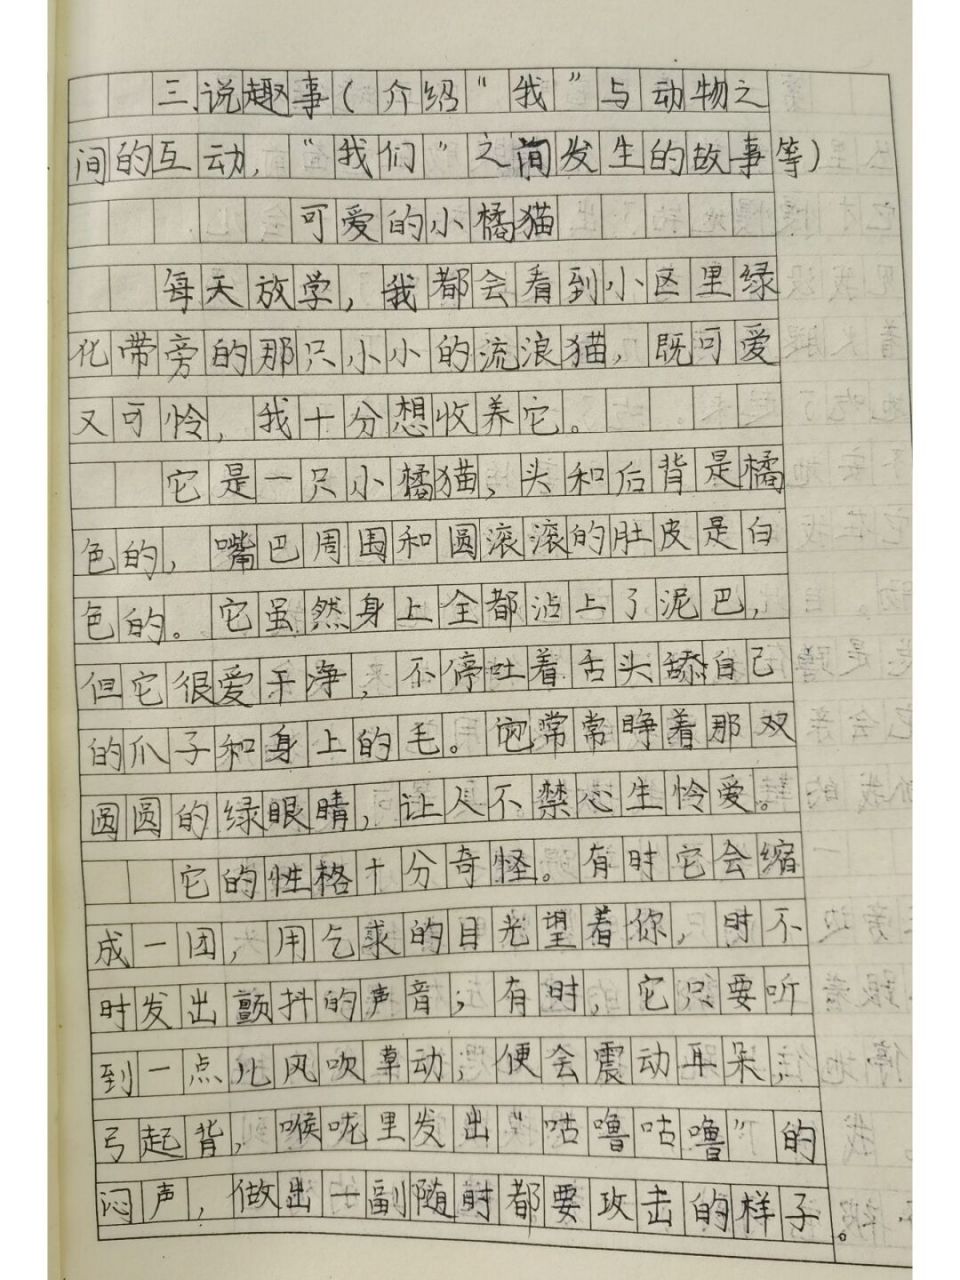 三、说趣事(介绍“我”与动物之
间的互动,“我们”之间发生的故事等)
可爱的小橘猫
每天放学,我都会看到小区里绿
化带旁的那只小小的流浪猫,既可爱
又可怜,我十分想收养它。
它是一只小橘猫,头和后背是橘
色的,嘴巴周围和圆滚滚的肚皮是白
色的。它虽然身上全都沾上了泥巴,
但它很爱干净,不停吐着舌头舔自己
的爪子和身上的毛。它常常睁着那双
圆圆的绿眼睛,让人不禁心生怜爱。
它的性格十分奇怪。有时它会缩
成一团,用乞求的目光望着你,时不
时发出颤抖的声音;有时,它只要听
到一点儿风吹草动,便会震动耳朵,
弓起背,喉咙里发出“咕噜咕噜”的
闷声,做出一副随时都要攻击的样子。